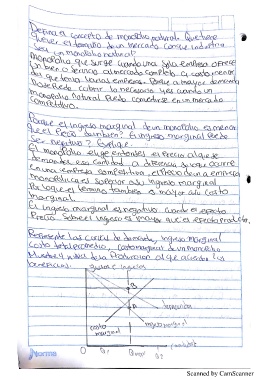 Defina el concepto de monopolio natural. Que tiene
que ver el tamaño de un mercado con que industria
sea un monopolio natural?
Monopolio que surge cuando una sola empresa ofrece
un bien o servicio al mercado completo a costo menor
que varias empresas. Porque a mayor demanda
cubrir lo necesario y es cuando un
monopolio natural puede convertirse en un mercado
competitivo.
Porque el ingreso marginal de un monopolio es menor
que el Precio ingreso marginal Puede
ser negativo? Explique.
El monopolio elige entonces el Precio al que se
demandes esa cantidad a diferencia de lo que ocurre
en una empresa competitiva, el Precio de una empresa
monopolica es superior al ingreso marginal
Por lo que el termino tambien es mayor al costo
marginal.
El ingreso marginal es negativo cuando el efecto
Precio sobre el ingreso es mayor que el efecto producto.
Represente las curvas de demanda, ingreso marginal
costo total promedio, costo marginal de un monopolio
Muestre el nivel de la Produccion al que
beneficios.
Costos e ingresos
B
A
demanda
costo
marginal
ingreso marginal
0 Q1 Qmax Q2 cantidad
Norma
Scanned by CamScanner